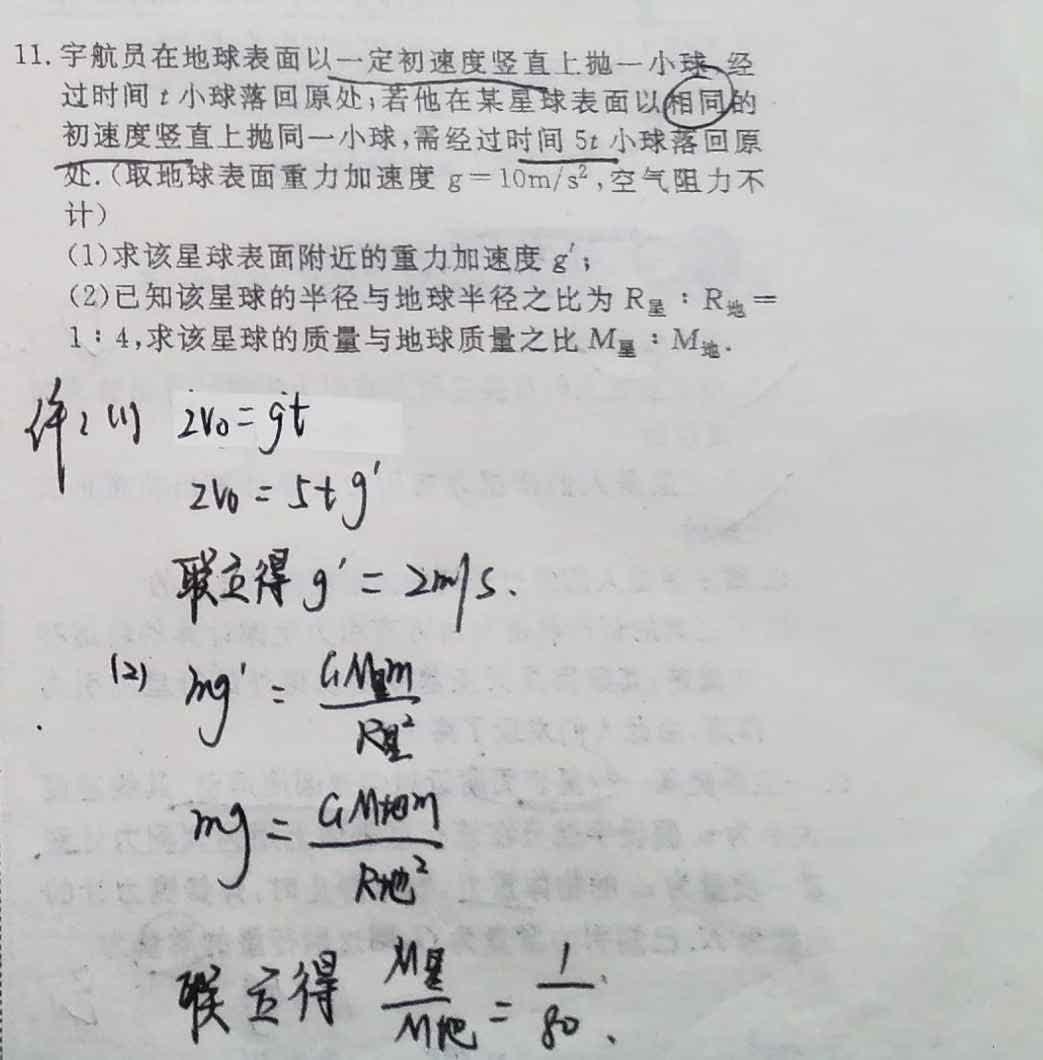 11. 宇航员在地球表面以一定初速度竖直上抛一小球,经
过时间 t 小球落回原处;若他在某星球表面以相同的
初速度竖直上抛同一小球,需经过时间 5t 小球落回原
处.(取地球表面重力加速度 g=10m/s²,空气阻力不
计)
(1)求该星球表面附近的重力加速度 g′;
(2)已知该星球的半径与地球半径之比为 R星:R地=
1:4,求该星球的质量与地球质量之比 M星:M地.
(1) 2v₀=gt
2v₀=5tg′
联立得 g′=2m/s.
(2) mg′=GM星m/R星²
mg=GM地m/R地²
联立得 M星/M地=1/80.